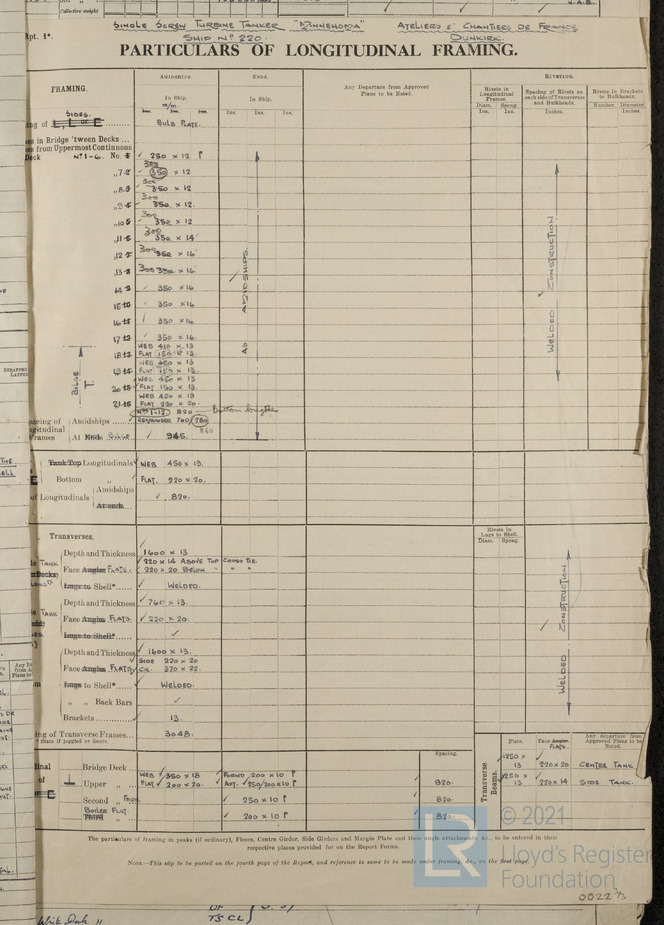 Collective weight
O.A.B.
SINGLE SCREW TURBINE TANKER "MINNEHOMA" ATELIERS E' CHANTIERS DE FRANCE
Rpt. 1*. SHIP Nº 220. DUNKIRK.
PARTICULARS OF LONGITUDINAL FRAMING.
FRAMING. AMIDSHIPS. ENDS. Any Departure from Approved Plans to be Noted. RIVETING.
In Ship. m/m. In Ship. Rivets in Longitudinal Frames. Spacing of Rivets on each side of Transverses and Bulkheads. Rivets in Brackets to Bulkheads.
Ins. Ins. Ins. Diam. Ins. Spcng. Ins. Inches. Number. Diameter, Inches.
SIDES.
ing of BULB PLATE.
es in Bridge 'tween Decks ...
es from Uppermost Continuous
Deck Nº 1-6. No. 250 × 12 P
300
„ 7 350 × 12
300
„ 8 350 × 12
300
„ 9 350 × 12.
300
„ 10 350 × 12
300
„ 11 350 × 14
12 300 350 × 16
13 300 350 × 16
14 350 × 16
15 350 × 16
16 350 × 16
17 350 × 16.
WEB 410 × 13
18 FLAT 150 × 13.
WEB 450 × 13
FLAT 150 × 13.
WEB 450 × 13
20 FLAT 150 × 13.
WEB 450 × 13
21 FLAT 220 × 20.
BILGE
AS AMIDSHIPS
WELDED CONSTRUCTION
Nº 1-12 820 bottom longtls
pacing of Amidships REMAINDER 760 780
ongitudinal 860
Frames At Ends Bilge 945.
Tank Top Longitudinals WEB 450 × 13.
Bottom „ FLAT. 220 × 20.
of Longitudinals Amidships 820.
At ends
Transverses. Rivets in Lugs to Shell. Diam. Spcng.
Depth and Thickness 1600 × 13
TANK 220 × 14 ABOVE TOP CROSS TIE.
Decks Face Angles FLATS. 220 × 20 BELOW " " "
Lugs to Shell* WELDED.
Depth and Thickness 760 × 13.
TANK Face Angles FLATS. 220 × 20.
Lugs to Shell*
Depth and Thickness 1600 × 13
SIDE 220 × 20
Face Angles FLATS CR. 370 × 22.
Lugs to Shell* WELDED.
„ „ Back Bars
Brackets 13.
ing of Transverse Frames... 3048.
* State if joggled or liners.
WELDED CONSTRUCTION
Spacing. Transverse Beams. Plate. Face Angles FLATS. Any departure from Approved Plans to be Noted.
inal Bridge Deck 1250 × 13 220×20 CENTER TANK
of Upper „ WEB 350 × 18 FORWD. 200 × 10 P 1250 × 13 220×14 SIDE TANK.
FLAT 200 × 20. AFT. 250/200×10 P 820.
Second „ 250 × 10 P 820.
BOILER FLAT
Third „ 200 × 10 P 820.
The particulars of framing in peaks (if ordinary), Floors, Centre Girder, Side Girders and Margin Plate and their angle attachments, &c., to be entered in their
respective places provided for on the Report Forms.
NOTE.—This slip to be pasted on the fourth page of the Report, and reference to same to be made under framing, &c., on the first page.
LR © 2021
Lloyd's Register
Foundation
0022 2/3
TSCL